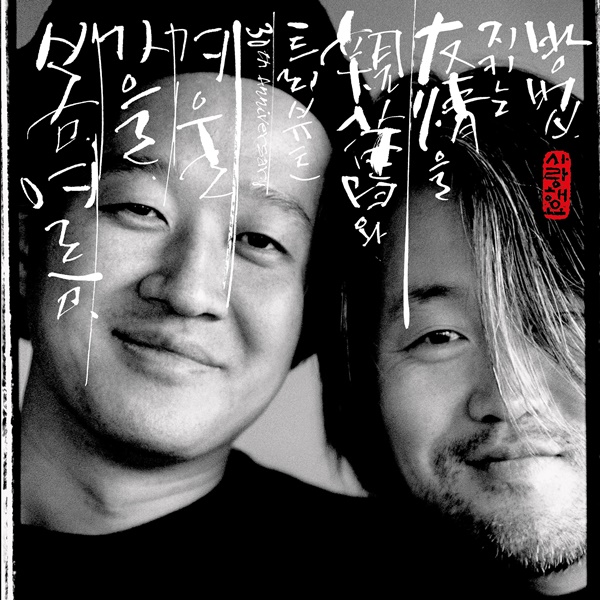 봄.여름.
가을.
겨울
30th Anniversary
트리뷰트
와
友情을
지키는
방법.
사랑해요